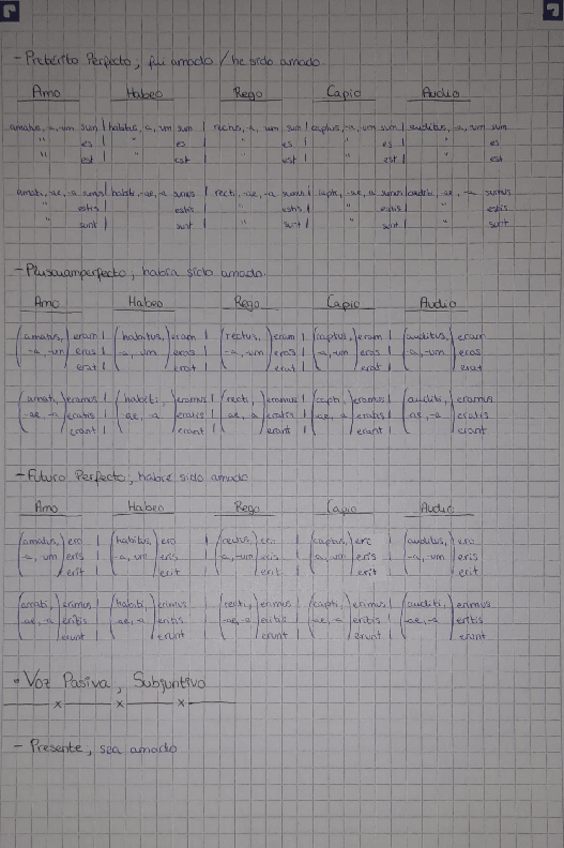 - Pretérito Perfecto; fui amado / he sido amado.
Amo Habeo Rego Capio Audio
amatus, -a, -um sum | habitus, -a, -um sum | rectus, -a, -um sum | captus, -a, -um sum | auditus, -a, -um sum
" es | " es | " es | " es | " es
" est | " est | " est | " est | " est
amati, -ae, -a sumus | habiti, -ae, -a sumus | recti, -ae, -a sumus | capti, -ae, -a sumus | auditi, -ae, -a sumus
" estis | estis | " estis | " estis | " estis
" sunt | sunt | " sunt | " sunt | " sunt
- Pluscuamperfecto; había sido amado.
Amo Habeo Rego Capio Audio
(amatus, ) eram | (habitus, ) eram | (rectus, ) eram | (captus, ) eram | (auditus, ) eram
-a, -um eras | -a, -um eras | -a, -um eras | -a, -um eras | -a, -um eras
erat | erat | erat | erat | erat
(amati, ) eramus | (habiti, ) eramus | (recti, ) eramus | (capti, ) eramus | (auditi, ) eramus
-ae, -a eratis | -ae, -a eratis | ae, -a eratis | ae, -a eratis | ae, -a eratis
erant | erant | erant | erant | erant
- Futuro Perfecto; habré sido amado
Amo Habeo Rego Capio Audio
(amatus, ) ero | (habitus, ) ero | (rectus, ) ero | (captus, ) ero | (auditus, ) ero
-a, -um eris | -a, -um eris | -a, -um eris | -a, -um eris | -a, -um eris
erit | erit | erit | erit | erit
(amati, ) erimus | (habiti, ) erimus | (recti, ) erimus | (capti, ) erimus | (auditi, ) erimus
ae, -a eritis | ae, -a eritis | -ae, -a eritis | ae, -a eritis | -ae, -a eritis
erunt | erunt | erunt | erunt | erunt
• Voz Pasiva, Subjuntivo
- Presente; sea amado